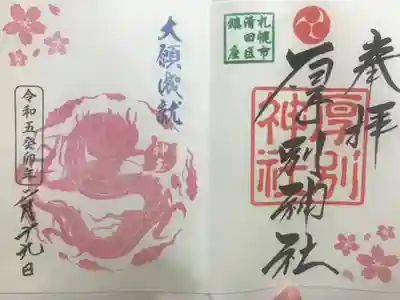 奉拝
札幌市
清田区
鎮座
厚別神社
厚別
神社
大願成就
令和五癸卯年